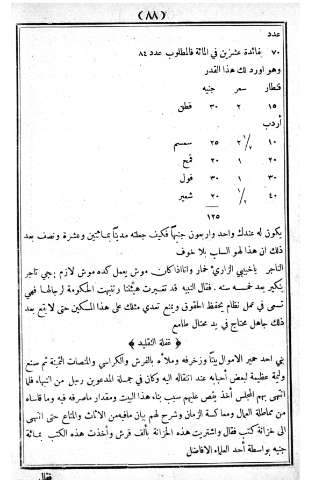 (٨٨)
عدد
٧٠ بفائدة عشرين في المائة فالمطلوب عدد ٨٤
وهو اورد لك هذا القدر
قنطار سعر جنيه
١٥ ٢ ٣٠ قطن
أردب
١٠ ٢ ١/٢ ٢٥ سمسم
٢٠ ١ ٢٠ قمح
٣٠ ١ ٣٠ فول
٤٠ ١/٢ ٢٠ شعير
١٢٥
يكون له عندك واحد واربعون جنيها فكيف جعلته مدينا بمائتين وعشرة ونصف بعد
ذلك ان هذا لهو السلب بلا خوف
التاجر ياخبيبي الزاري خمار واناإذاكان موش يعمل كده موش لازم يجي تاجر
يتكبر بعد خمسه سنه . فقال النبيه قد تغيرت هيئتنا وتنبهت الحكومة لرجالها فهي
تسعى في عمل نظام يحفظ الحقوق ويمنع تعدي مثلك على هذا المسكين حتى لا يقع بعد
ذلك جاهل محتاج في يد محتال طامع
﴿ غفلة التقليد ﴾
بنى احد حمير الاموال بيتا وزخرفه وملأه بالفرش والكراسي والمنصات الثمينة ثم صنع
وليمة عظيمة لبعض أحبابه عند انتقاله اليه وكان في جملة المدعوين رجل من النبهاء فلما
انتهى بهم المجلس أخذ يقص عليهم سبب بناء هذا البيت ومقدار ماصرفه فيه وما قاساه
من مماطلة العمال ومعاكسة الزمان وشرح لهم بيان مافيه من الاثاث والمتاع حتى انتهى
الى خزانة كتب فقال واشتريت هذه الخزانة بألف قرش وأخذت هذه الكتب بمائة
جنيه بواسطة أحد العلماء الافاضل
فقال